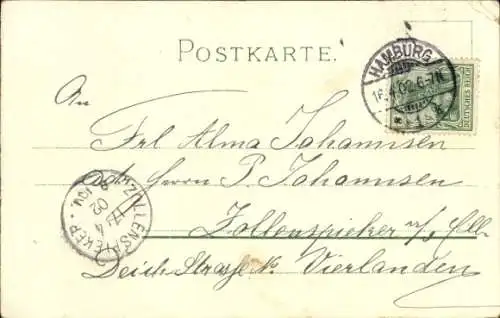 POSTKARTE.
HAMBURG
16.4.02.6-7N.
DEUTSCHES REICH
An
Frl Alma Johannsen
Adr. Herrn P. Johannsen
Zollenspieker a/d Elbe
Deich Strasse No Vierlanden
ZOLLENSPIEKER
17/4
02